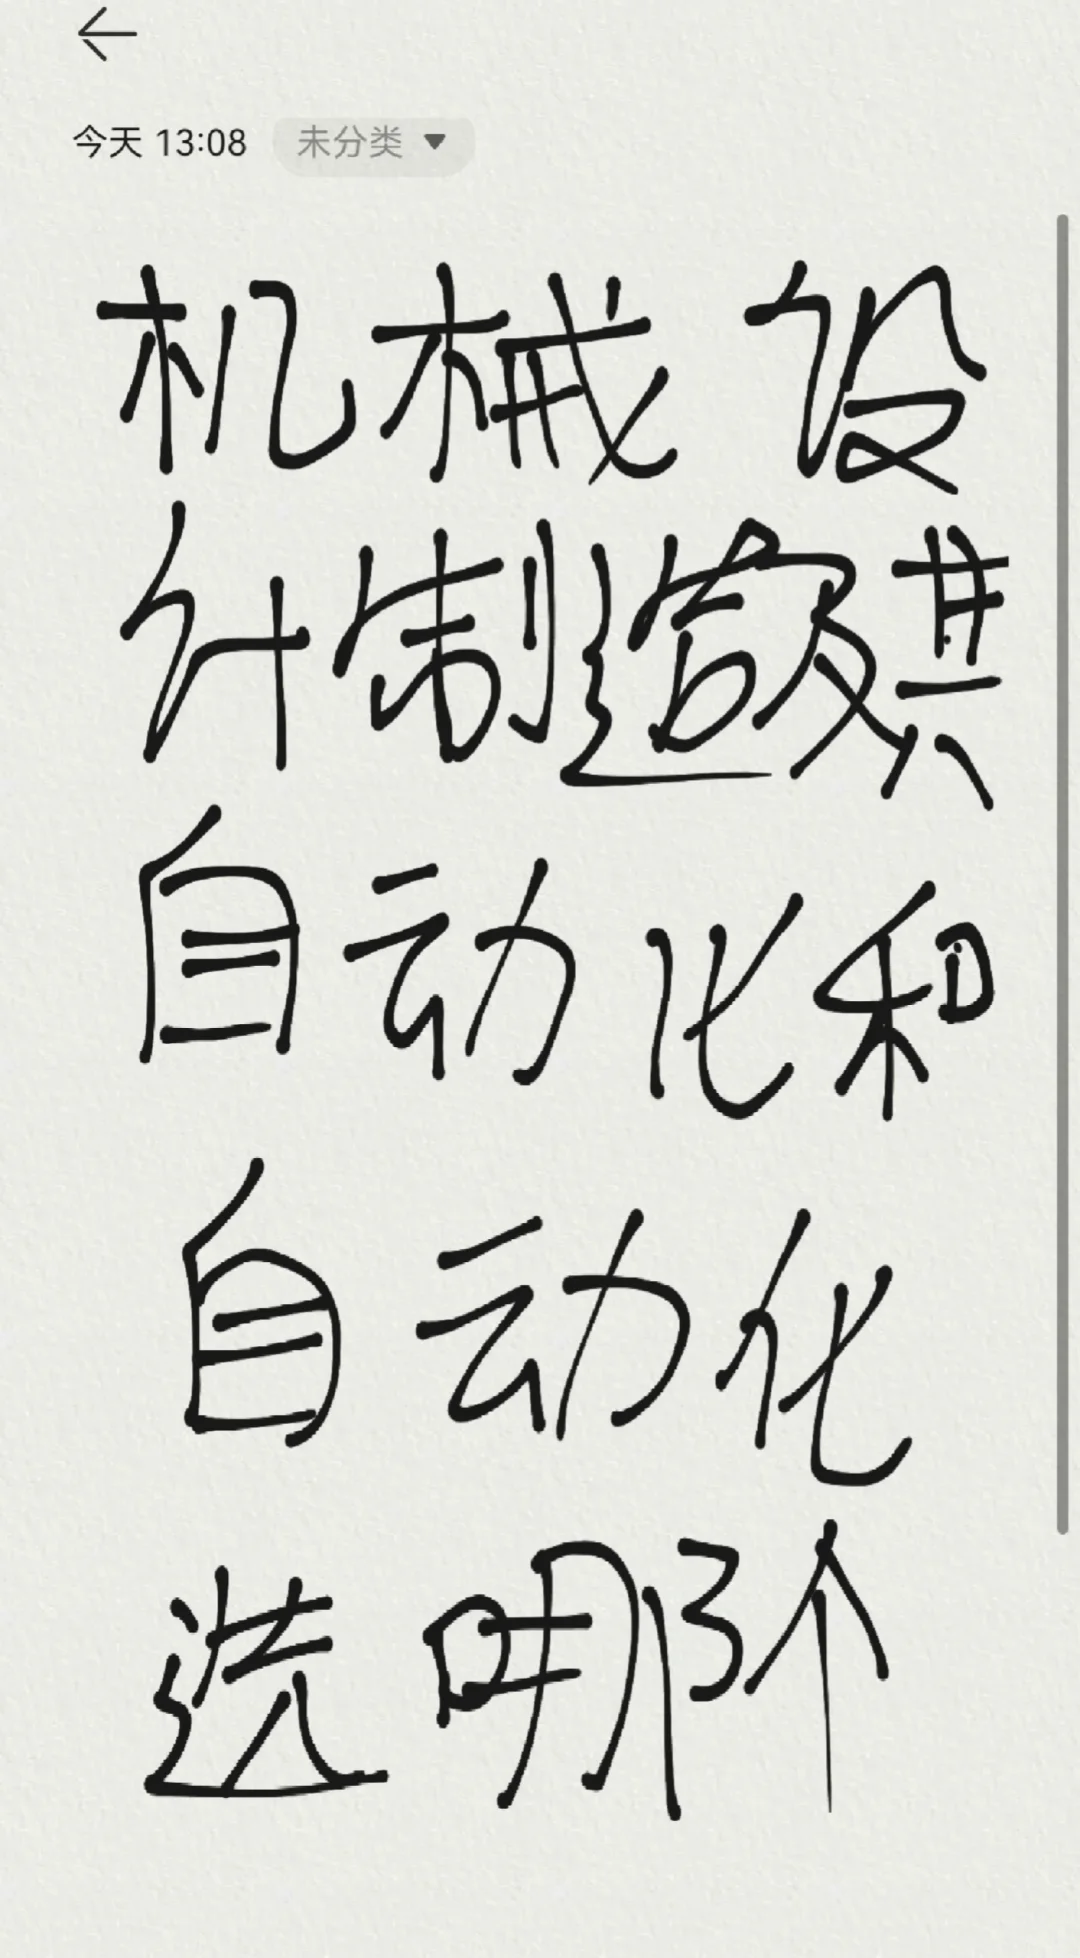 今天 13:08 未分类
机械设
计制造及其
自动化和
自动化
选哪个